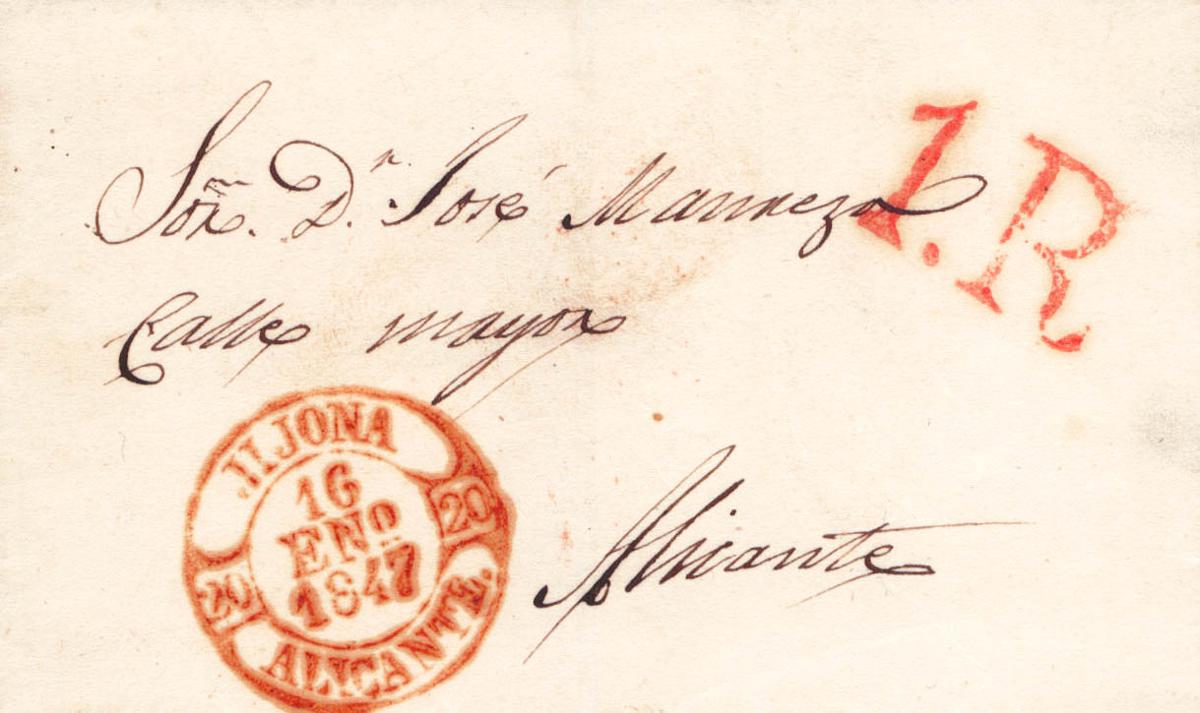 Sor. Dn. José
1.R
Calle mayor
HJONA
16
ENO
1847
20
20
ALICANTE.
Alicante